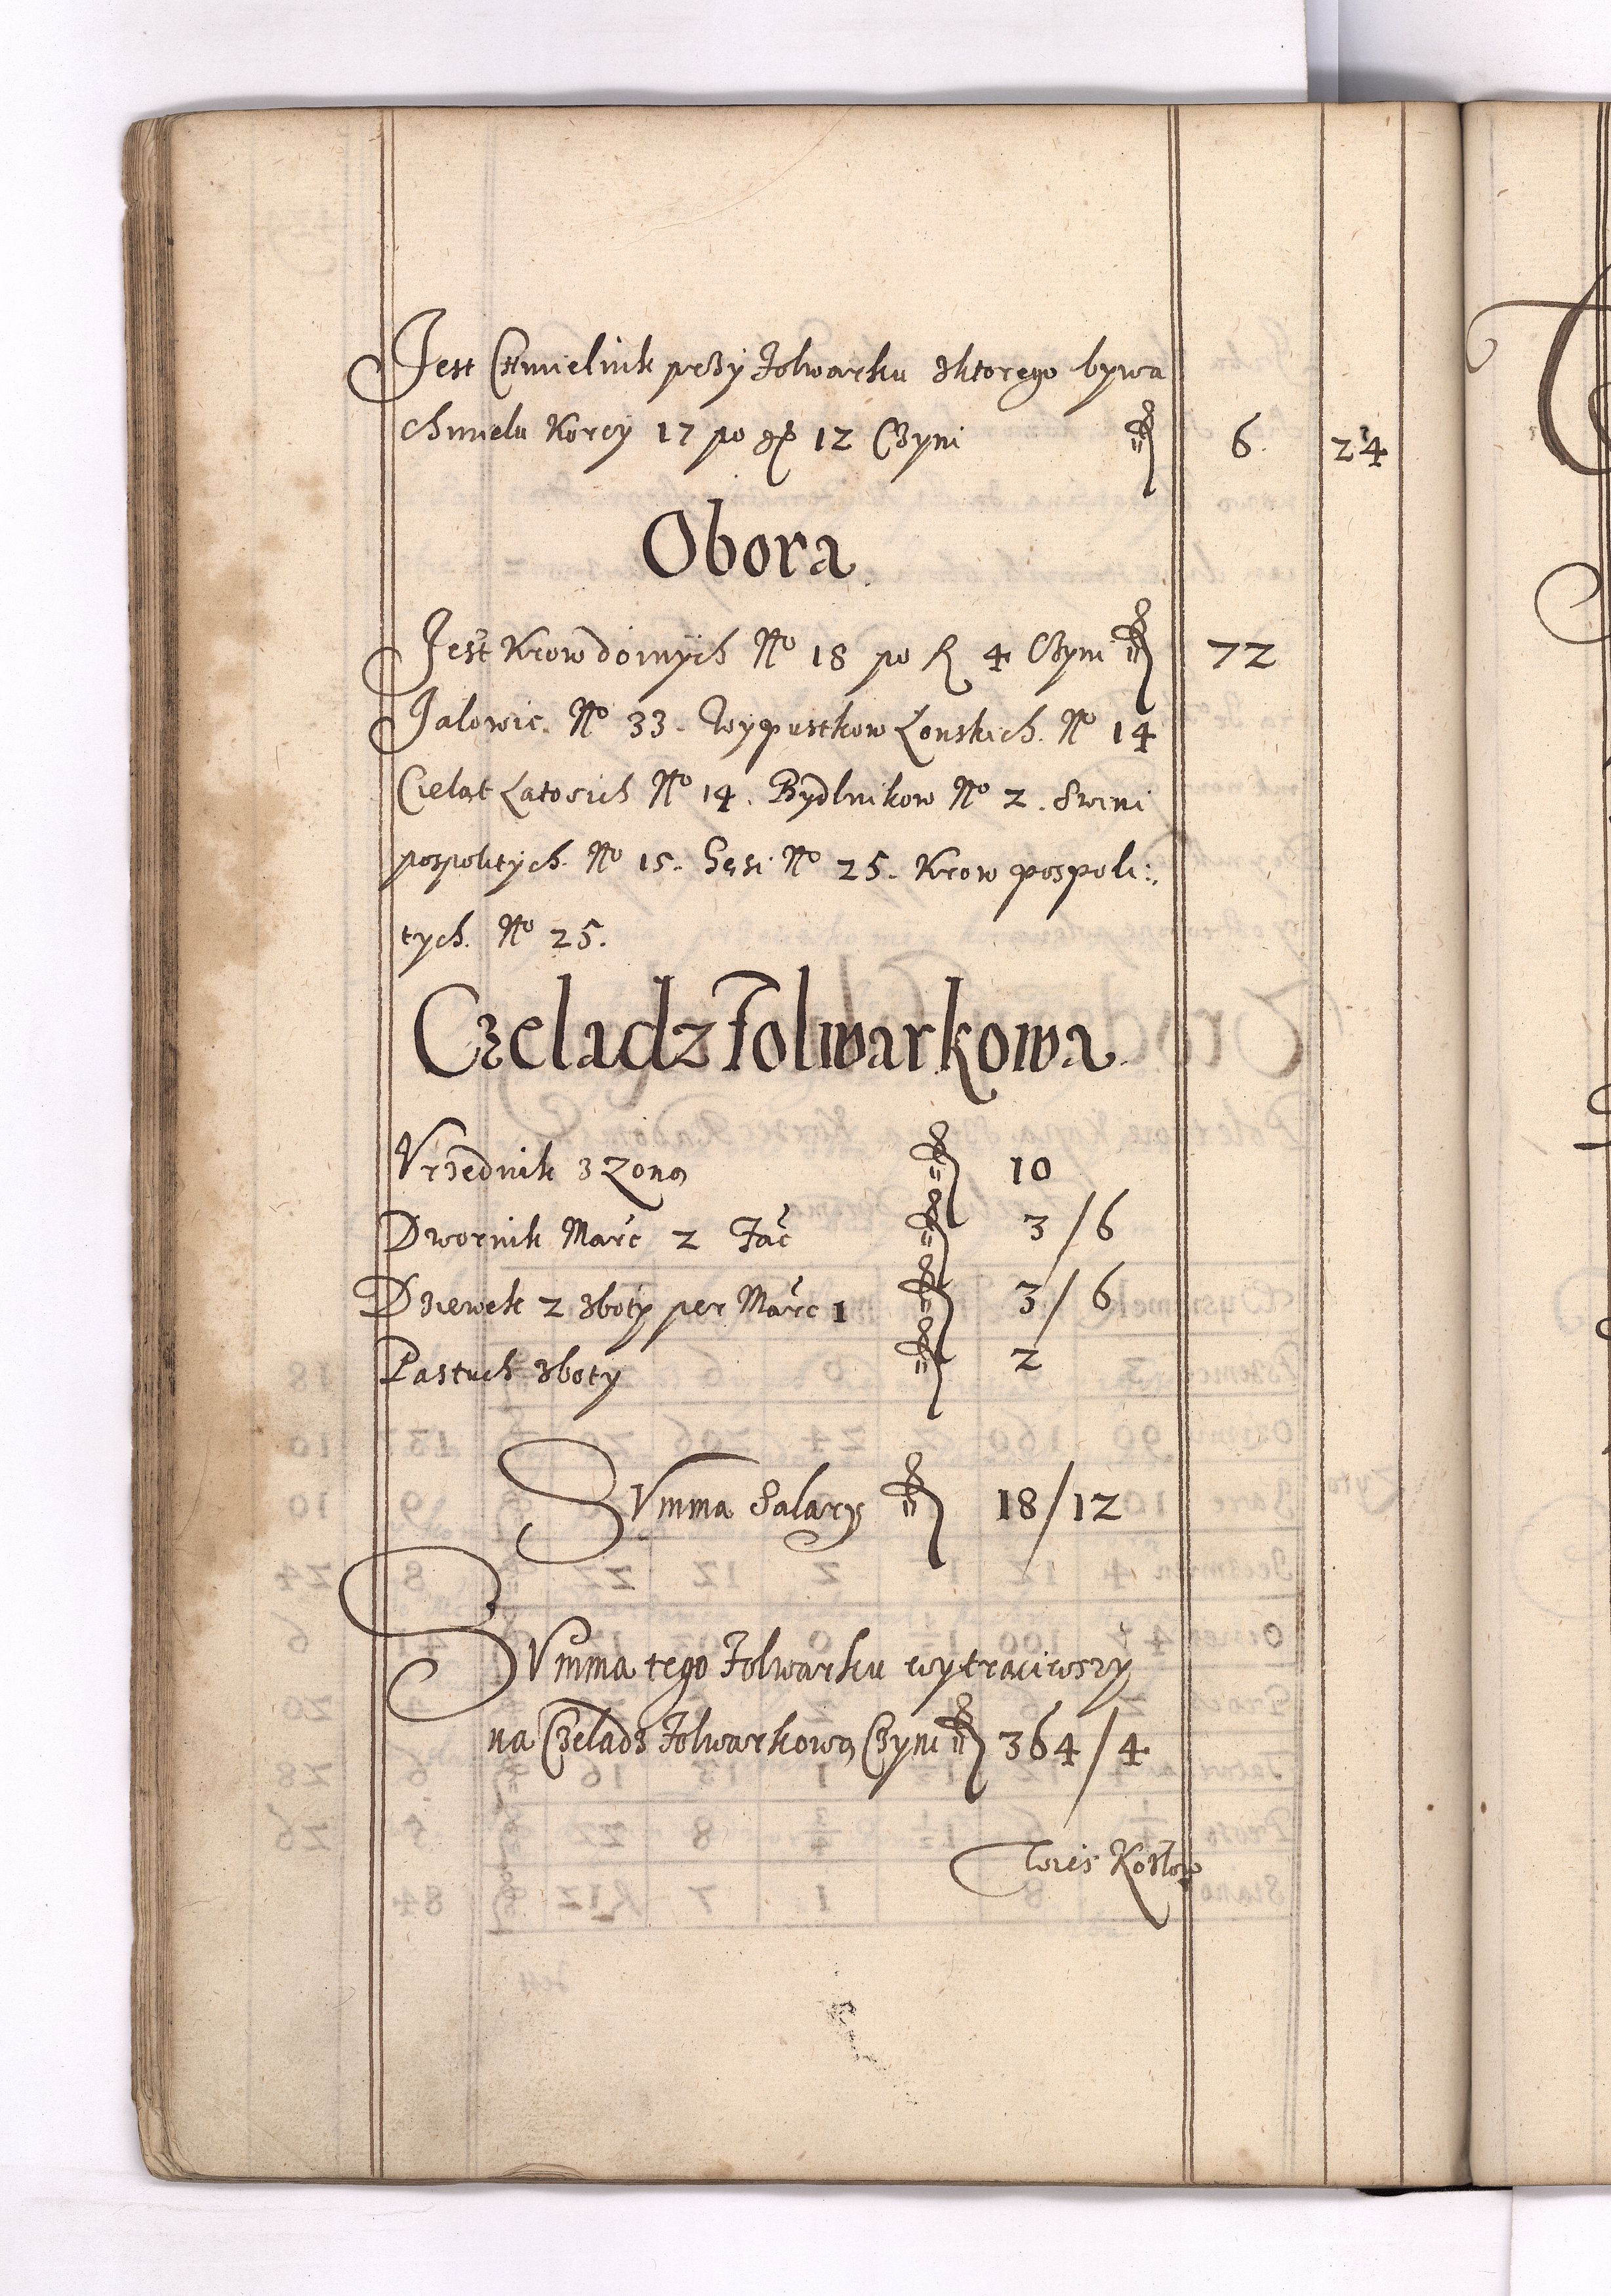 Jest Chmielnik przy Folwarku zktorego bywa
chmielu Korcy 17 po gr 12 Czyni fl 6. 24
Obora
Jest Krow doinych No 18 po fl 4 Czyni fl 72
Jalowic. No 33. Wypustkow Łonskich. No 14
Cieląt Latosich No 14. Bydlnikow No 2. Swini
pospolitych. No 15. Gęsi No 25. Krow pospoli:
tych. No 25.
Czeladz Folwarkowa
Vrzednik z Zoną fl 10
Dwornik Marc 2 Fac fl 3/6
Dziewek 2 zboty per Marc 1 fl 3/6
Pastuch zboty fl 2
SVmma Salary fl 18/12
SVmma tego Folwarku wytraciwszy
na Czeladz Folwarkową Czyni fl 364/4
Wies Kozłow